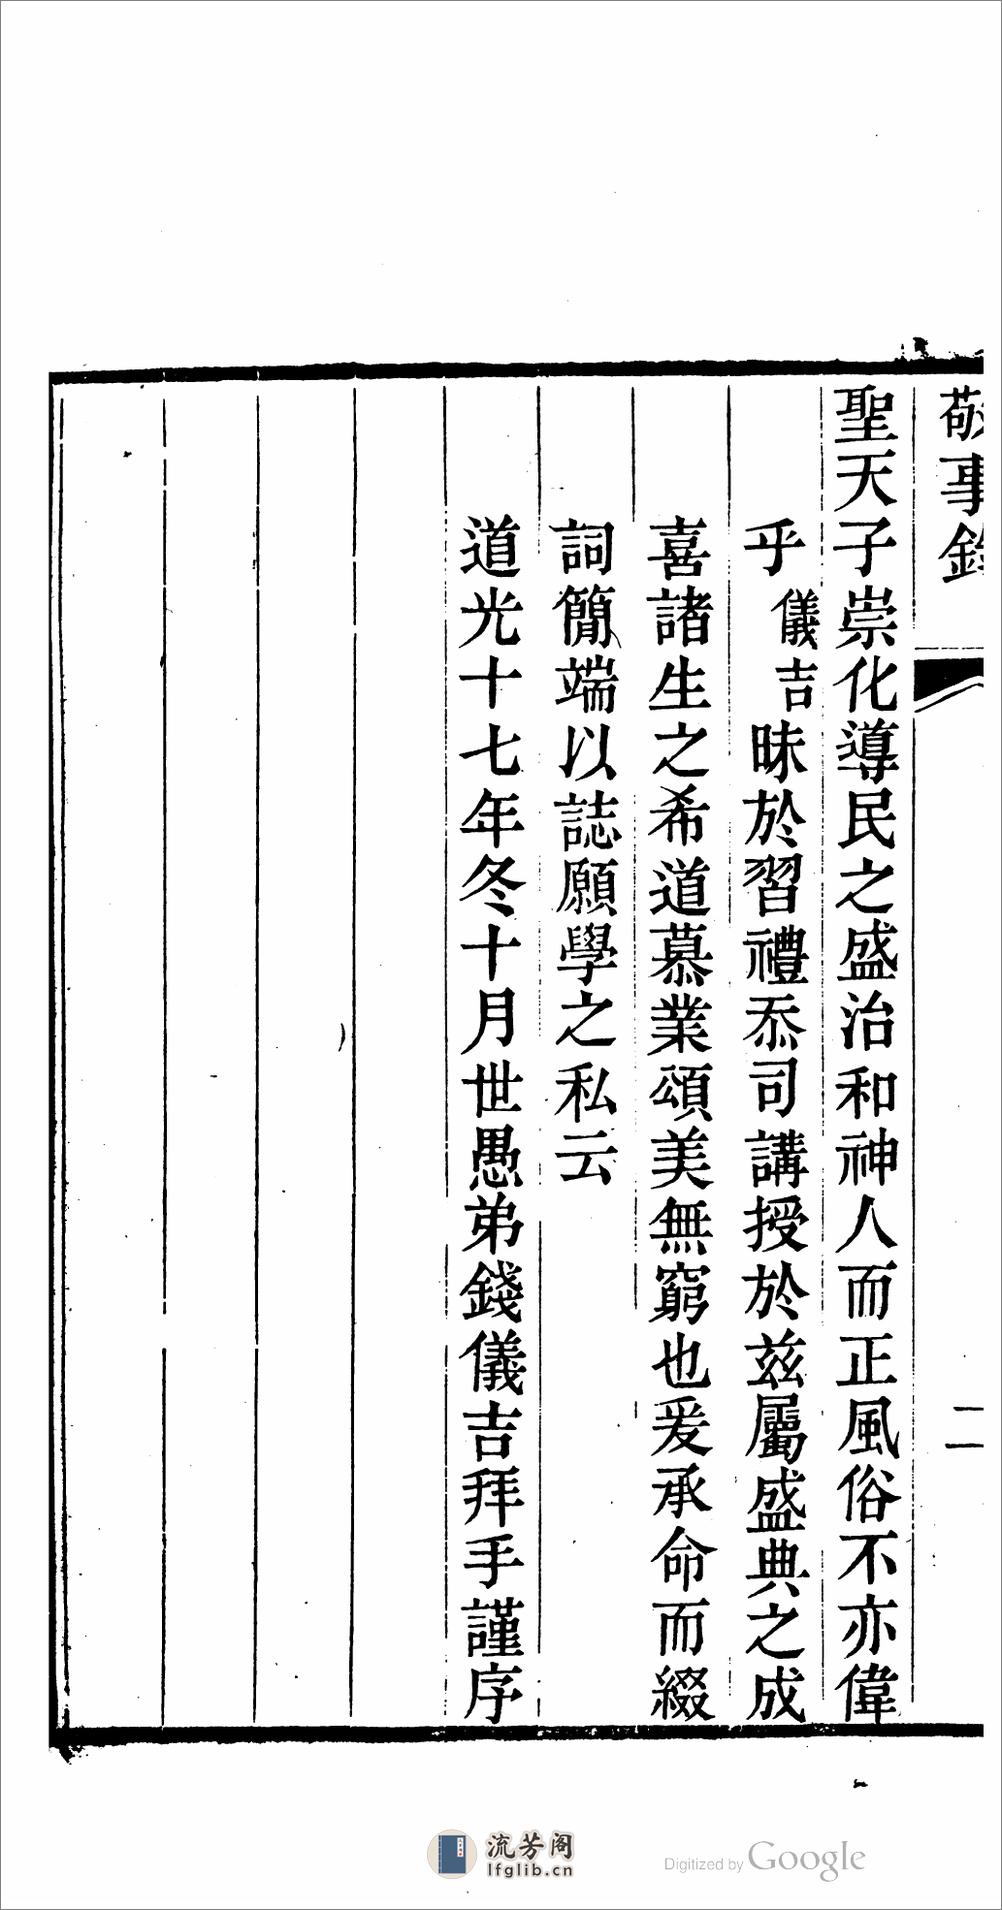 敬事錄
二
聖天子崇化導民之盛治和神人而正風俗不亦偉
乎儀吉昧於習禮忝司講授於茲屬盛典之成
喜諸生之希道慕業頌美無窮也爰承命而綴
詞簡端以誌願學之私云
道光十七年冬十月世愚弟錢儀吉拜手謹序
流芳阁
lfglib.cn
Digitized by Google